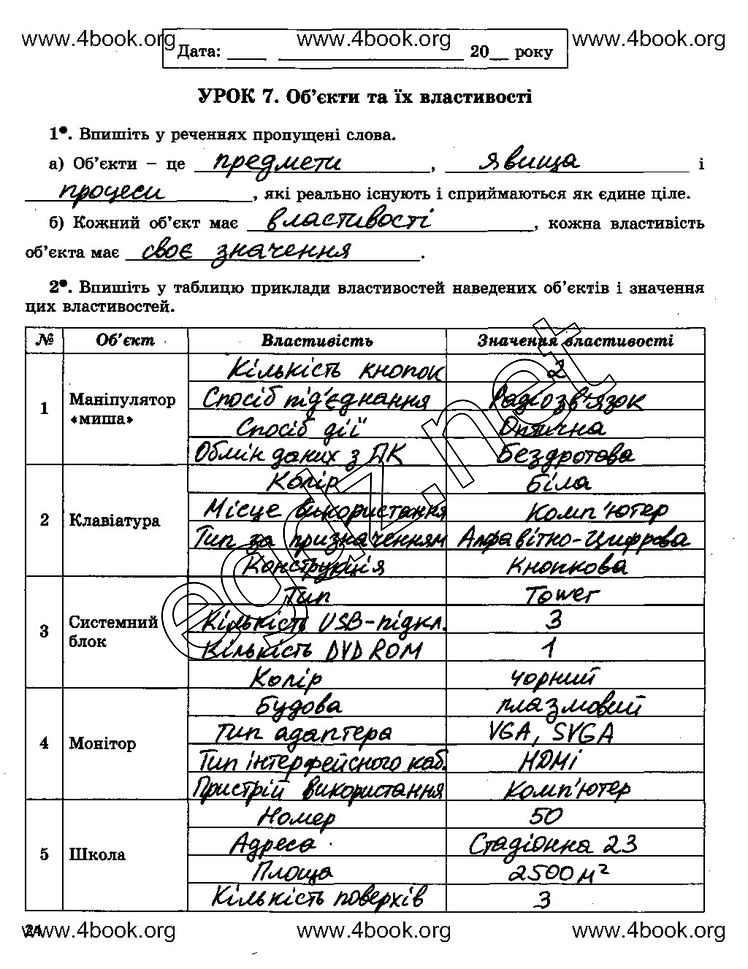 www.4book.org www.4book.org www.4book.org
Дата: ____ ____________ 20__ року
УРОК 7. Об’єкти та їх властивості
1•. Впишіть у реченнях пропущені слова.
а) Об’єкти – це предмети, явища і
процеси, які реально існують і сприймаються як єдине ціле.
б) Кожний об’єкт має властивості, кожна властивість
об’єкта має своє значення.
2•. Впишіть у таблицю приклади властивостей наведених об’єктів і значення
цих властивостей.
№ Об’єкт Властивість Значення властивості
1 Маніпулятор «миша» Кількість кнопок 2
Спосіб під’єднання Радіозв’язок
Спосіб дії Оптична
Обмін даних з ПК Бездротова
2 Клавіатура Колір Біла
Місце використання Комп’ютер
Тип за призначенням Алфавітно-цифрова
Конструкція Кнопкова
3 Системний блок Тип Tower
Кількість USB-підкл. 3
Кількість DVD ROM 1
Колір чорний
4 Монітор Будова плазмовий
Тип адаптера VGA, SVGA
Тип інтерфейсного каб. HDMi
Пристрій використання Комп’ютер
5 Школа Номер 50
Адреса Стадіонна 23
Площа 2500 м²
Кількість поверхів 3
egdz.net
24
www.4book.org www.4book.org www.4book.org